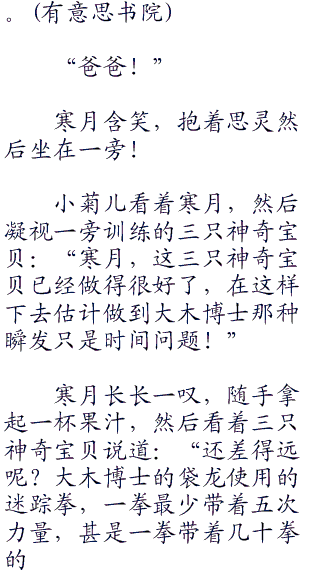 。(有意思书院)
“爸爸！”
寒月含笑，抱着思灵然
后坐在一旁！
小菊儿看着寒月，然后
凝视一旁训练的三只神奇宝
贝：“寒月，这三只神奇宝
贝已经做得很好了，在这样
下去估计做到大木博士那种
瞬发只是时间问题！”
寒月长长一叹，随手拿
起一杯果汁，然后看着三只
神奇宝贝说道：“还差得远
呢？大木博士的袋龙使用的
迷踪拳，一拳最少带着五次
力量，甚是一拳带着几十拳
的